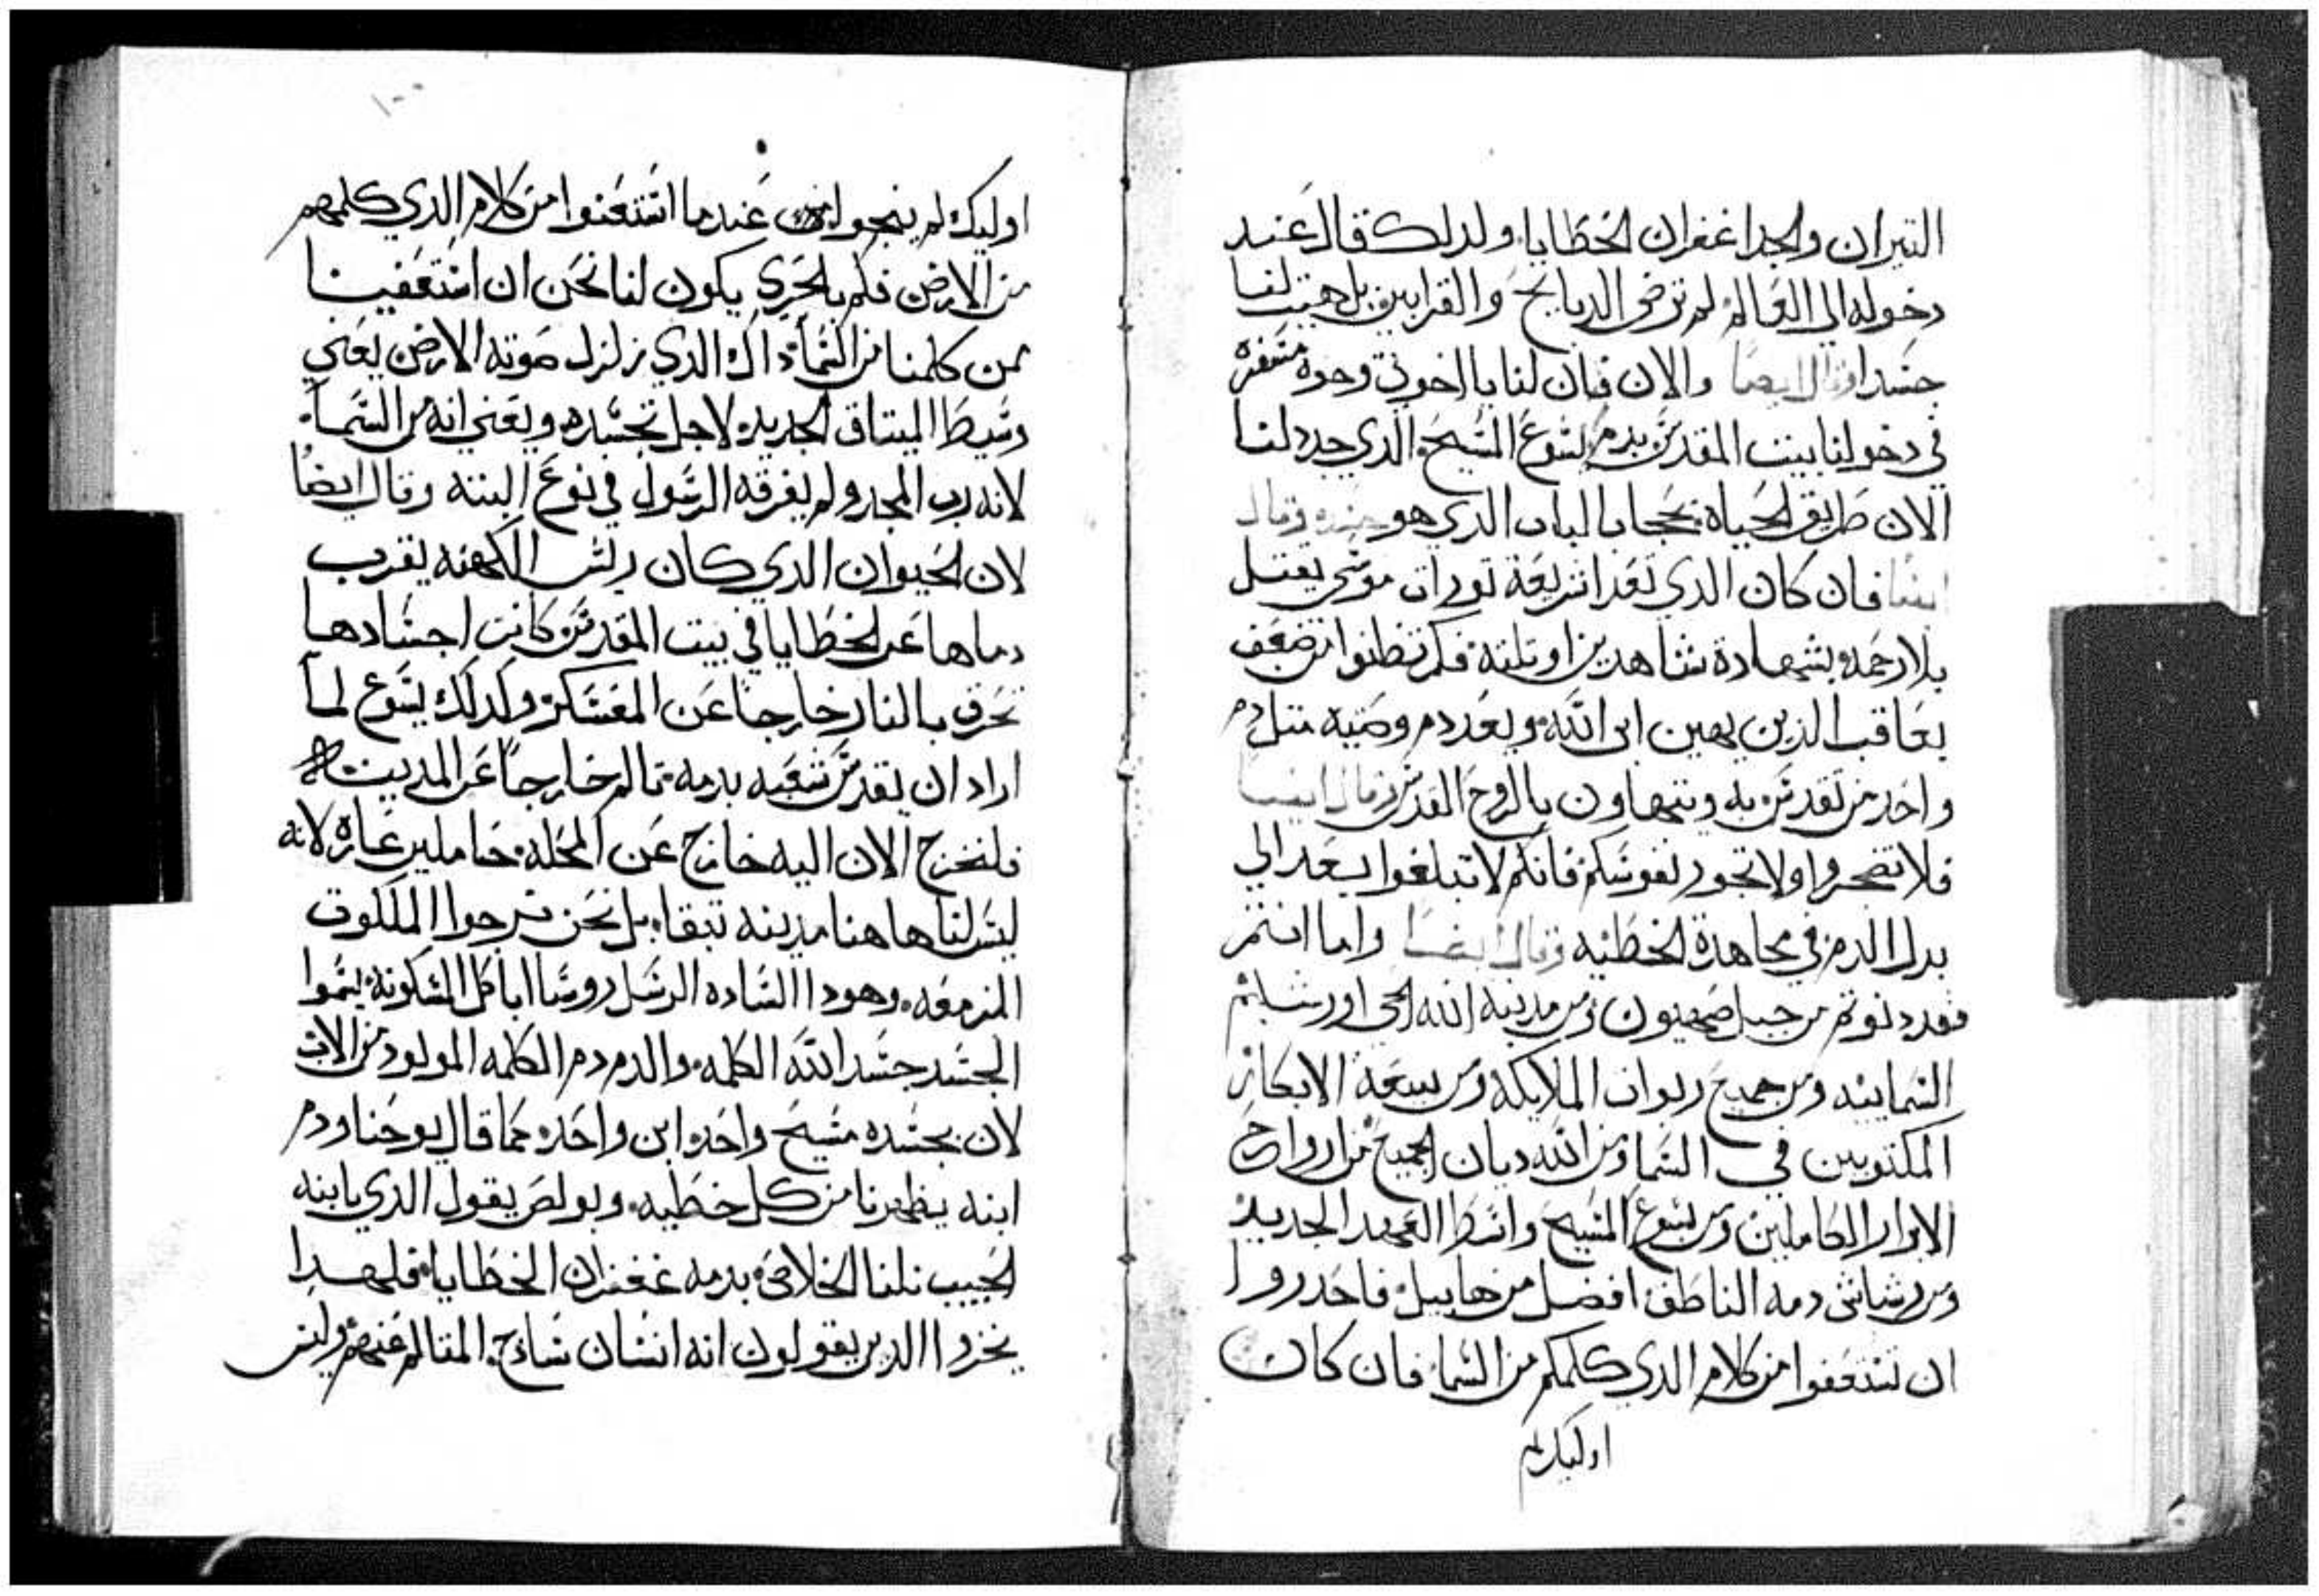 التيران والجدا غفران الخطايا. ولدلك قال عند
دخوله الي العالم لم ترضي الدبايح والقرابين بل هيت لنا
جسدا وقال ايضا والان فان لنا يا اخوتي وحده مسفره
في دخولنا بيت المقدس بدم يسوع المسيح. الدي جدد لنا
الان طريق الحياه بحجاب الباب الدي هو جسده وقال
ايضا فان كان الدي تعدا شريعة تورات موسي يقتل
بلا رحمه بشهادة شاهدين او تلته فكم تظنوا تتضعف
يعاقب الذين يهين ابن الله ويعد دم وصيته متل دم
واحد من تقدس به ويتهاون بالروح القدس وقال ايضا
فلا تضجروا ولا تخور نفوسكم فانكم لا تبلغوا بعد الي
بدل الدم في مجاهدة الخطيه وقال ايضا واما انتم
فقد دنوتم من جبل صهيون ومن مدينة الله الحي اورشليم
السماييه ومن جميع ربوات الملايكه ومن بيعة الابكار
المكتوبين في السما ومن الله ديان الجميع من ارواح
الابرار الكاملين ومن يسوع المسيح واسط العهد الجديد
ومن رشاش دمه الناطق افضل من هابيل فاحدروا
ان تستعفوا من كلام الدي كلمكم من السما فان كان
اوليك لم
١٠٠
اوليك لم ينجوا عندما استعفوا من كلام الدي كلمهم
من الارض فكم بالحري يكون لنا نحن ان استعفينا
ممن كلمنا من السما داك الدي زلزل صوته الارض يعني
وسيط الميتاق الجديد لاجل تجسده ويعني انه من السما
لانه رب المجد ولم يفرقه الرسول في نوع البته وقال ايضا
لان الحيوان الدي كان ريس الكهنه يقرب
دماها عن الخطايا في بيت المقدس كانت اجسادها
تحرق بالنار خارجا عن المعسكر ولدلك يسوع لما
اراد ان يقدس شعبه بدمه تالم خارجا عن المدينه
فلنخرج الان اليه خارج عن المحله حاملين عاره لانه
ليس لنا هاهنا مدينه تبقا. بل نحن نرجوا الملكوت
المزمعه. وهودا الساده الرسل روسا ابا كل المسكونه يسموا
الجسد جسد الله الكلمه. والدم دم الكلمه المولود من الاب
لان بجسده مسيح واحد ابن واحد كما قال يوحنا ودم
ابنه يطهرنا من كل خطيه. وبولص يقول الدي بابنه
الحبيب نلنا الخلاص بدمه غفران الخطايا. فلهدا
يخزوا الدين يقولون انه انسان سادج. المتالم عنهم وليس